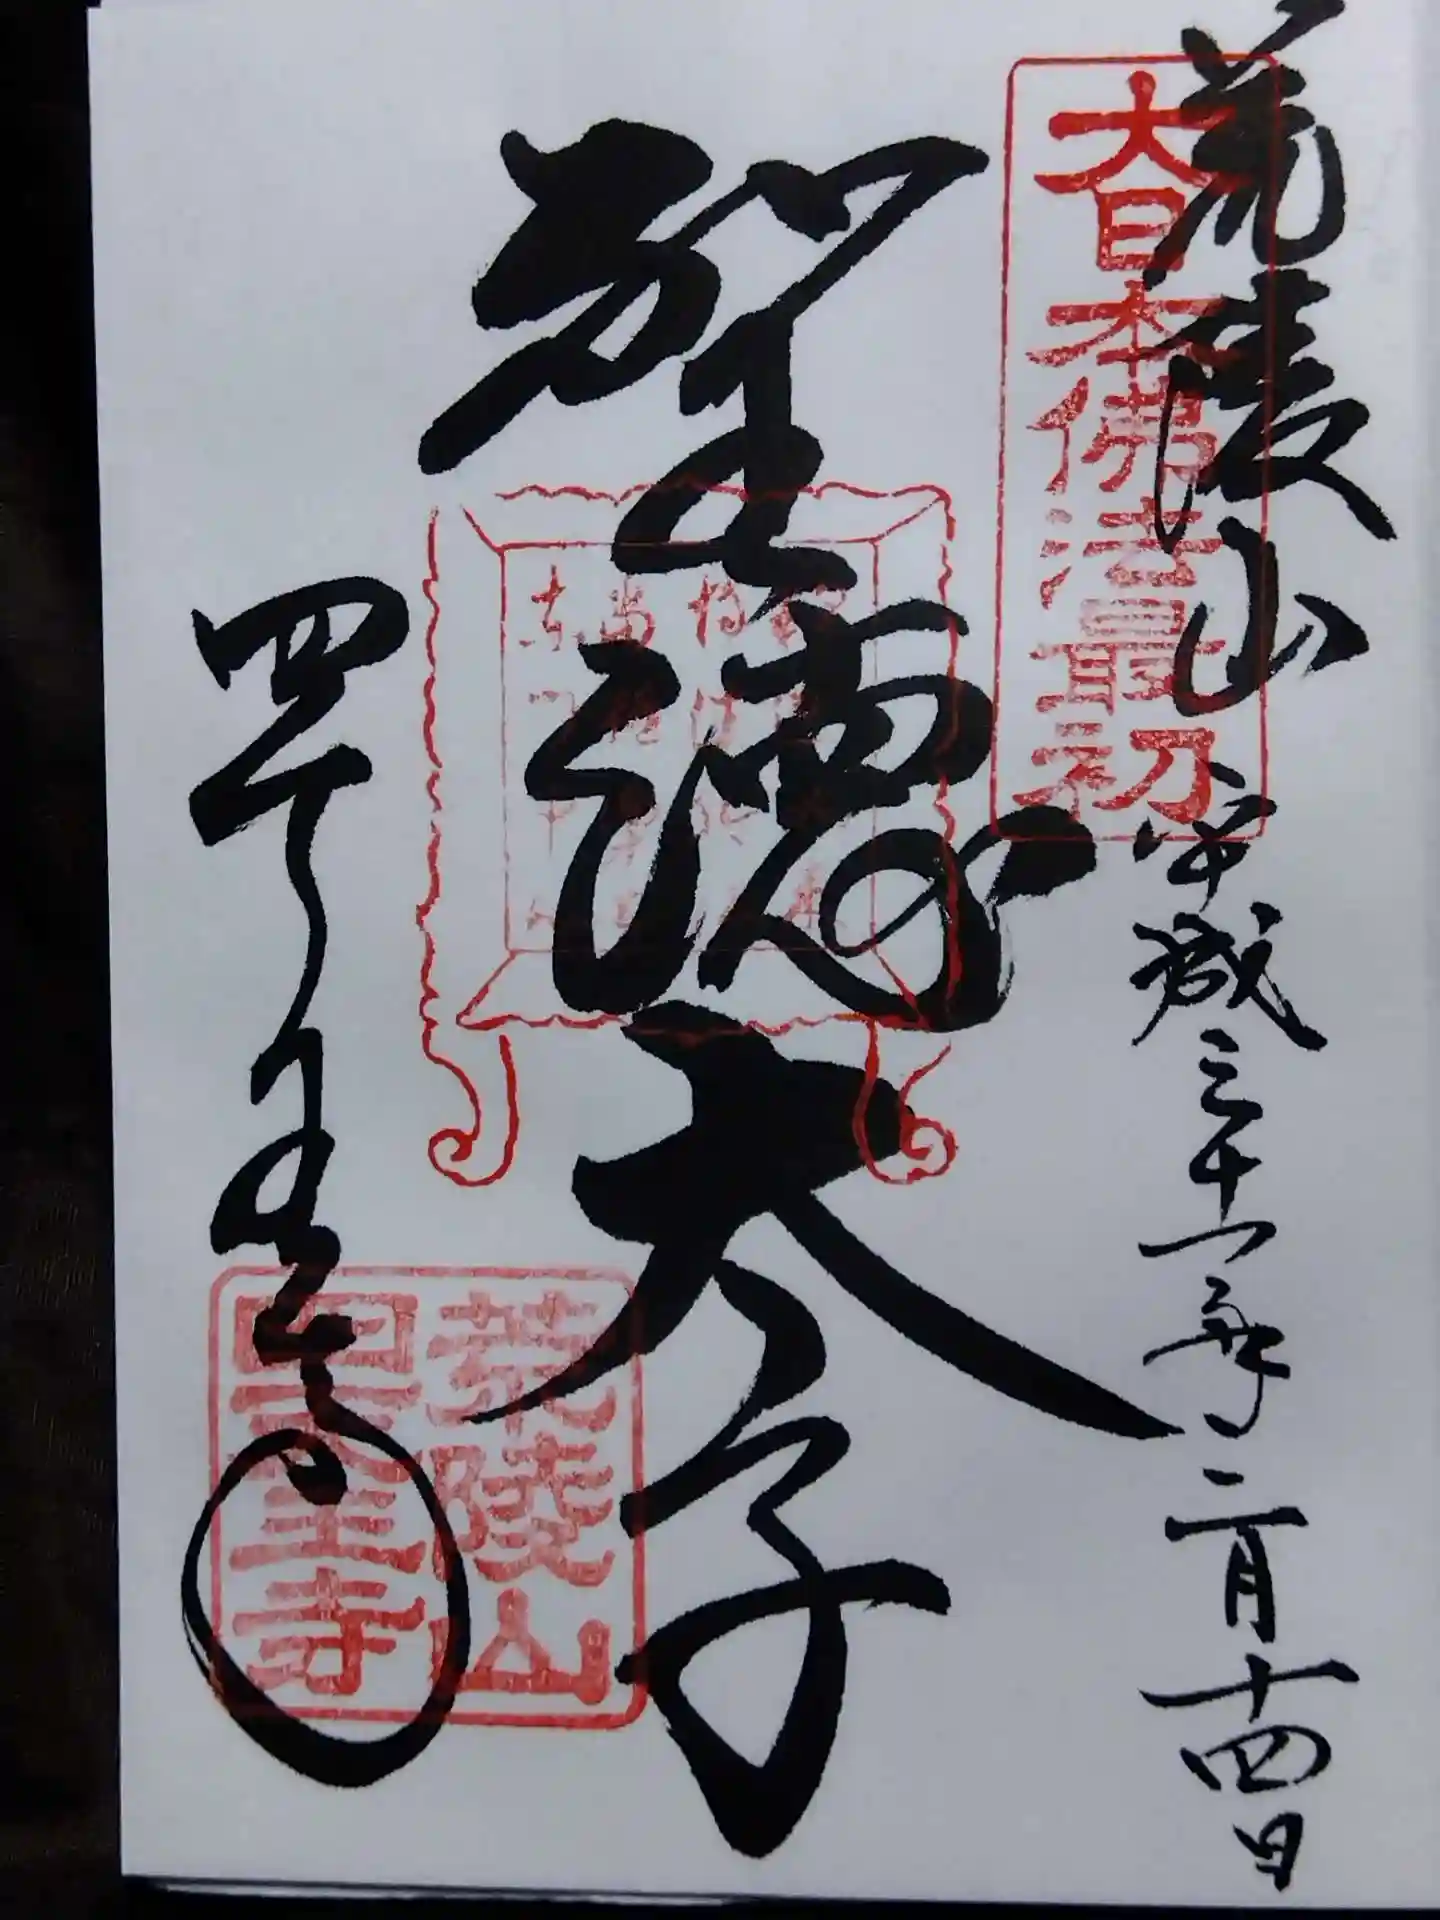 荒陵山
平成三十一年二月十四日
大日本佛法最初
聖徳太子
四天王寺
荒陵山
四天王寺